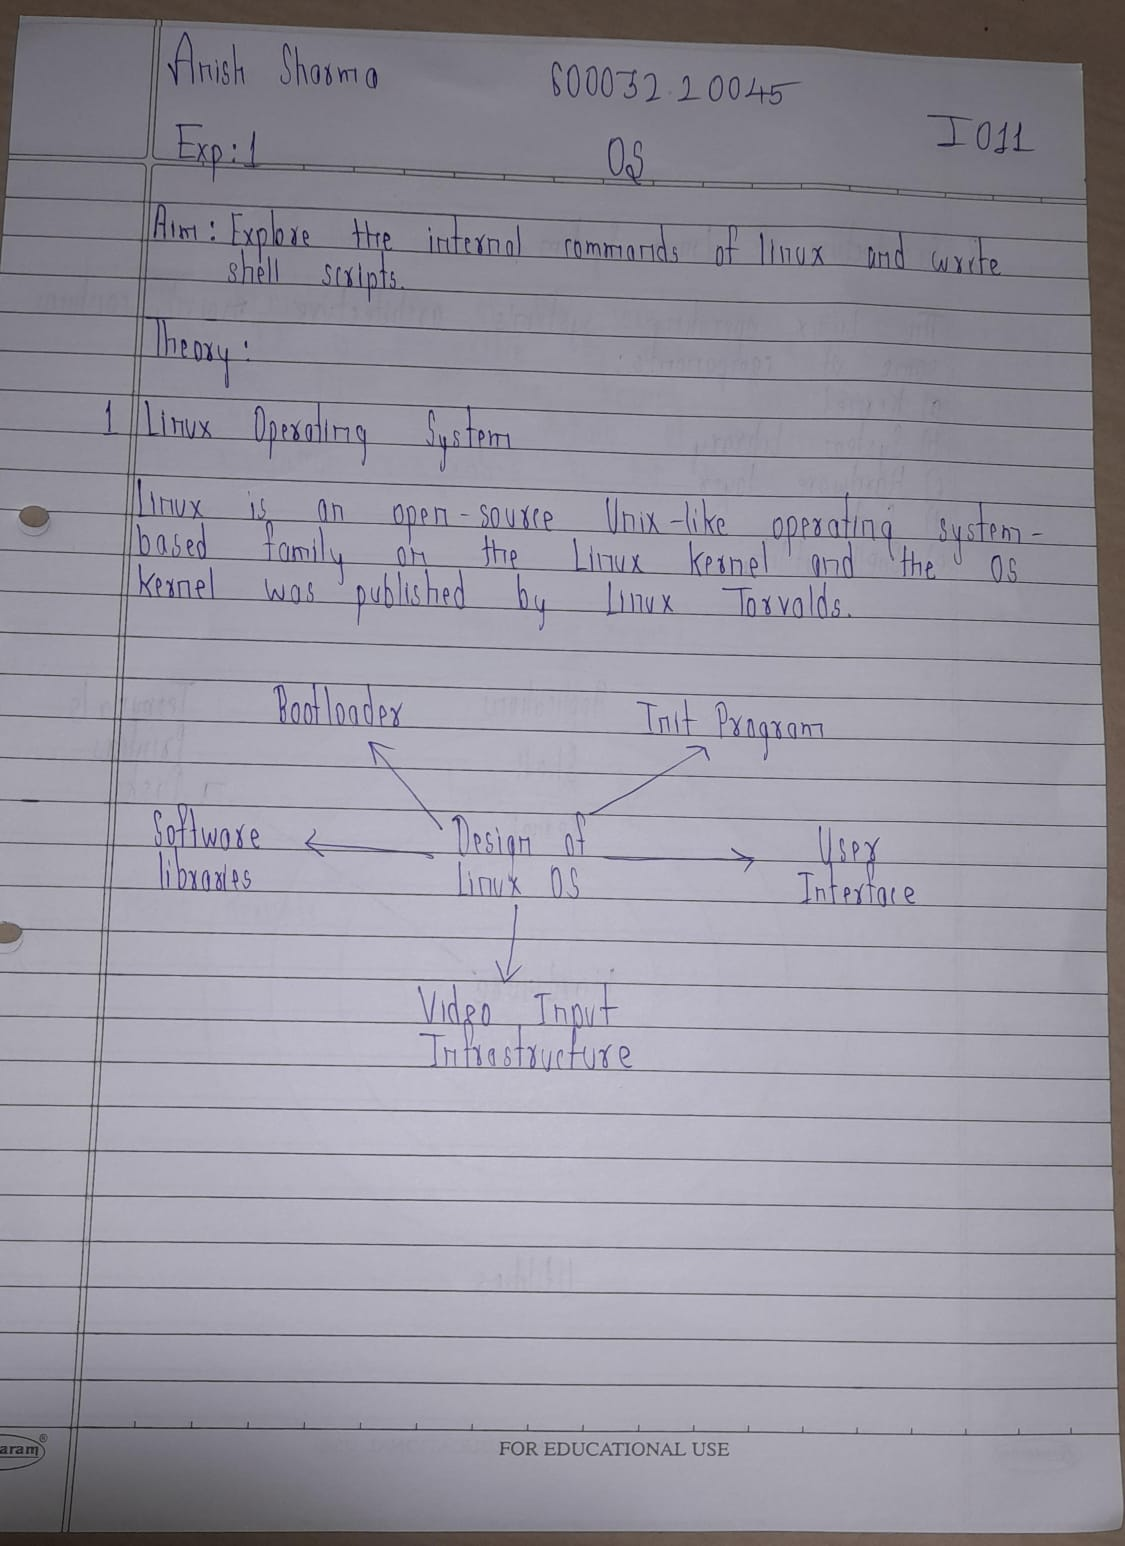 Anish Sharma 60003220045
I011
Exp:1 OS
Aim: Explore the internal commands of linux and write
shell scripts.
Theory:
1 Linux Operating System
Linux is an open-source Unix-like operating system-
based family on the Linux kernel and the OS
kernel was published by Linux Torvalds.
Bootloader Init Program
Software Design of User
libraries Linux OS Interface
Video Input
Infrastructure
aram®
FOR EDUCATIONAL USE